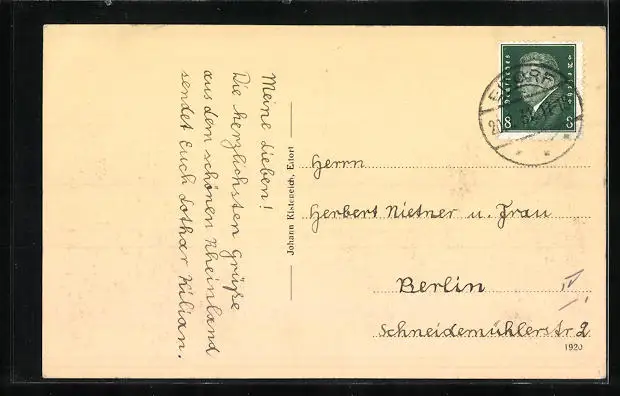 Meine Lieben!
Die herzlichsten Grüße
aus dem schönen Rheinland
sendet Euch Lothar Kilian.
Johann Kisteneich, Eitorf
Deutsches Reich
8 8
EITORF
Herrn
Herbert Nietner u. Frau
Berlin
Schneidemühlerstr 2
1920